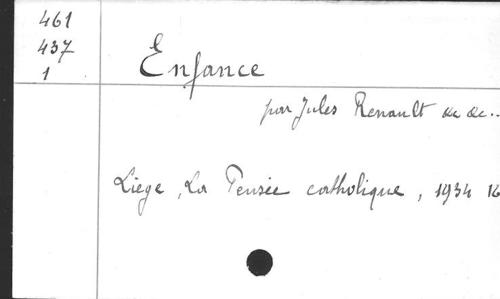 461
437
1
Enfance
par Jules Renault &c &c..
Liège, La Pensée catholique, 1934 16